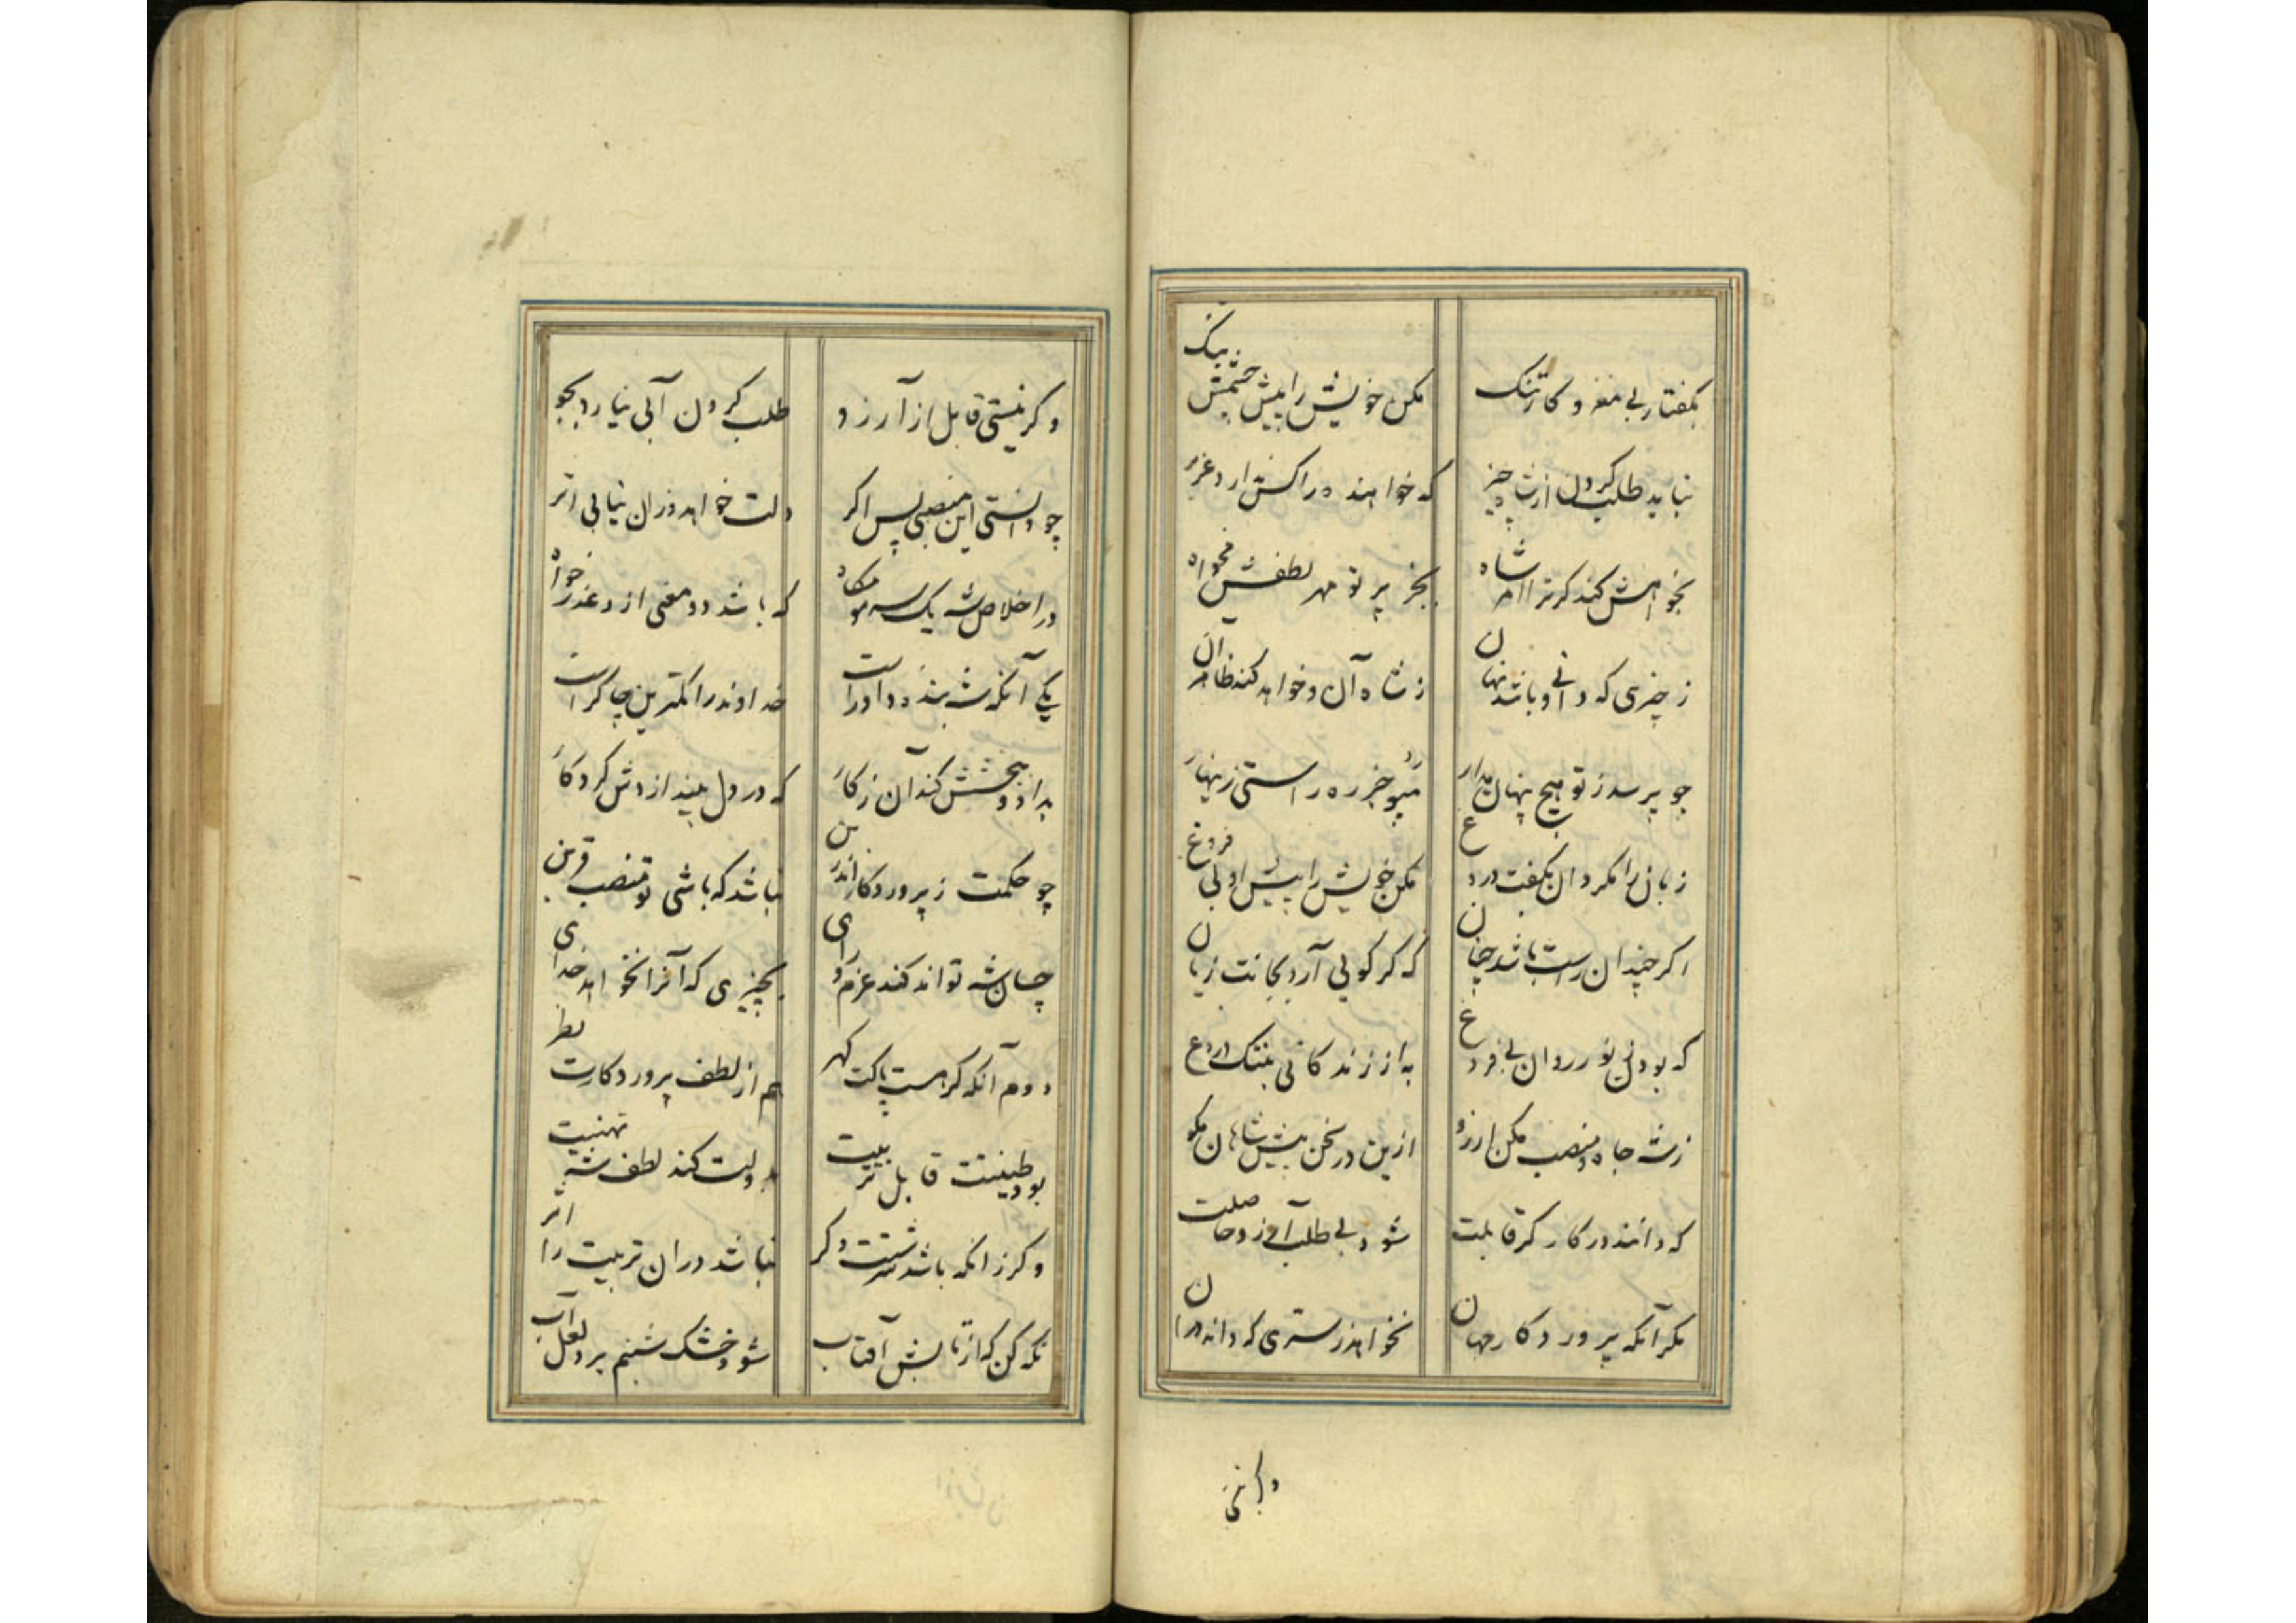 بکفتار بی مغز و کار تنک
مکن خویش را پیش چشمش سبک
نباید طلب کردن از شه چیز
که خواهند در اکش دارد عزیز
بخواهش کند کر ترا شاه
بجز پرتو مهر لطفش مخواه
ز چیزی که دانی و باشد نهان
ز شاه آن و خواهد کند ظاهر آن
چو پرسد ز تو هیچ پنهان مدار
مپو جز ره راستی زینهار
زبان را مکردان بکفت دروغ
مکن خویش را پیش او بی فروغ
اکر چندان راست باشد چنان
که کر کویی آرد بجانت زیان
که بودن نور روان بی فروغ
به از زندکانی بننک دروغ
ز شه جاه و منصب مکن ارزو
ازین در سخن پیش شاهان مکو
که دانند در کار کر قابلت
شود بی طلب آرزو حاصلت
مکر آنکه پروردکار جهان
نخواهد ز ستری که داند در ان
وکر نیستی
وکر نیستی قابل از آرزو
طلب کردن آبی نیارد بجو
چو دانستی این منصبی پس اکر
دلت خواهد و زان نیابی اثر
در اخلاص شه یک سر مو مکاه
که باشد دو معنی ازو عذر خواه
یکی آنکه شه بنده داور است
خداوند را کمترین چاکر است
بداد و بخشش کند آن ز کار
که در دل بیندازدش کردکار
چو حکمت ز پروردکار اندرین
نباشد که باشی تو منصب قرین
چسان شه تواند کند عزم و رای
بچیزی که آنرا نخواهد خدای
دوم آنکه کر هست پاکت کهر
هم از لطف پروردکارت نظر
بود طینتت قابل تربیت
بدولت کند لطف شه تهنیت
و کر زانکه باشد سرشتت دکر
نباشد در ان تربیت را اثر
نکه کن که از تابش آفتاب
شود خشک شبنم برد لعل آب